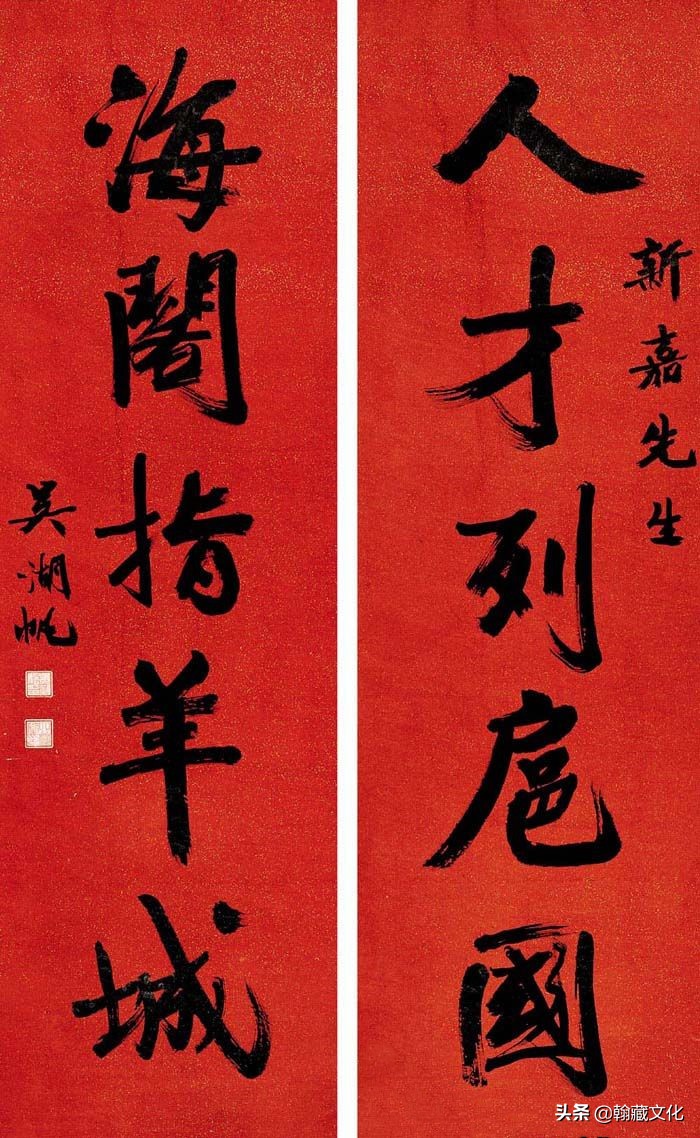 新嘉先生
人才列扈國
海闍指羊城
吳湖帆
头条 @翰藏文化